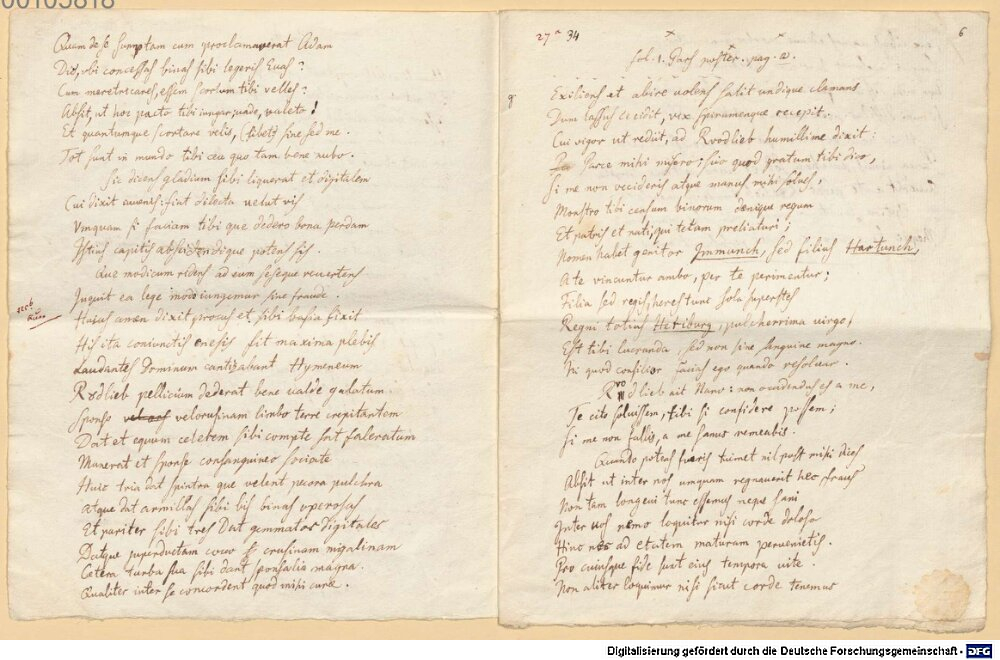 00105818
Quam de se sumptam cum proclamaverat Adam
Dic, ubi concessas binas sibi legeris Evas?
Cum meretricares, essem scortum tibi velles?
Absit, ut hoc pacto tibi iungar; vade, valeto!
Et quantumque scortare velis, (licet) sine sed me.
Tot sunt in mundo tibi ceu quo tam bene nubo.
Sic dicens gladium sibi liquerat et digitalem
Cui dixit iuvenis: fiat dilecta velut vis
Umquam si faciam tibi que dedero bona perdam
Istius capitis abscidendique potens sis.
Que modicum ridens ad eum seseque revertens
Inquit ea lege modo iungemur sine fraude.
Huius amen dixit procus et sibi basia fixit
His ita coniunctis
fit maxima plebis
Laudantes Dominum cantizabant Hymeneum
Rodlieb pellicium dederat bene valde gulatum.
Sponso
velorusinam limbo terre crepitantem
Dat et equum celerem sibi compte sat faleratum
Munerat et sponse consanguineo sociate
Huic tria dat spintra que velent pecora pulchra
Atque dat armillas sibi bis binas operosas
Et pariter sibi tres Dat gemmatos digitales
Datque superductam coco
crusinam migalinam
Cetera turba sua sibi dant sponsalia magna.
Qualiter inter se concordent quid mihi cure.
27 a 34
6
fol. 1. Pars poster. pag. 2.
Exiliens et abire volens salit undique clamans
Dum lassus cecidit, vix spiramenque recepit.
Cui vigor ut rediit, ad Rvodlieb humillime dixit:
Parce mihi misero; suo quod gratum tibi dico,
Si me non occideris atque manus mihi solvis,
Monstro tibi censum binorum denique regum
Et patris et nati, qui tecum preliatur;
Nomen habet genitor Immunch, sed filius Hartunch,
A te vincuntur ambo, per te perimentur;
Filia sed regis, heres tunc sola superstes
Regni totius Heriburg, pulcherrima virgo,
Est tibi lucranda, sed non sine sanguine magno.
Ni quod consilior facias ego quando resolvar.
Rvodlieb ait Nano: non occidendus es a me,
Te cito solvissem, tibi si confidere possem;
Si me non fallis, a me sanus remeabis.
Quando potens fueris tui met nil post mihi dices
Absit ut inter nos umquam regnaverit hec fraus
Non tam longevi tunc essemus neque sani
Inter vos nemo loquitur nisi corde doloso
Hinc nec ad etatem maturam pervenietis.
Pro cuiusque fide sunt eius tempora vite.
Non aliter loquimur nisi sicut corde tenemus
Digitalisierung gefördert durch die Deutsche Forschungsgemeinschaft - DFG